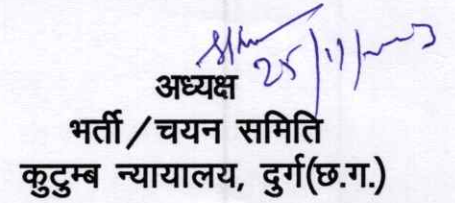 25/11/
अध्यक्ष
भर्ती/चयन समिति
कुटुम्ब न्यायालय, दुर्ग(छ.ग.)